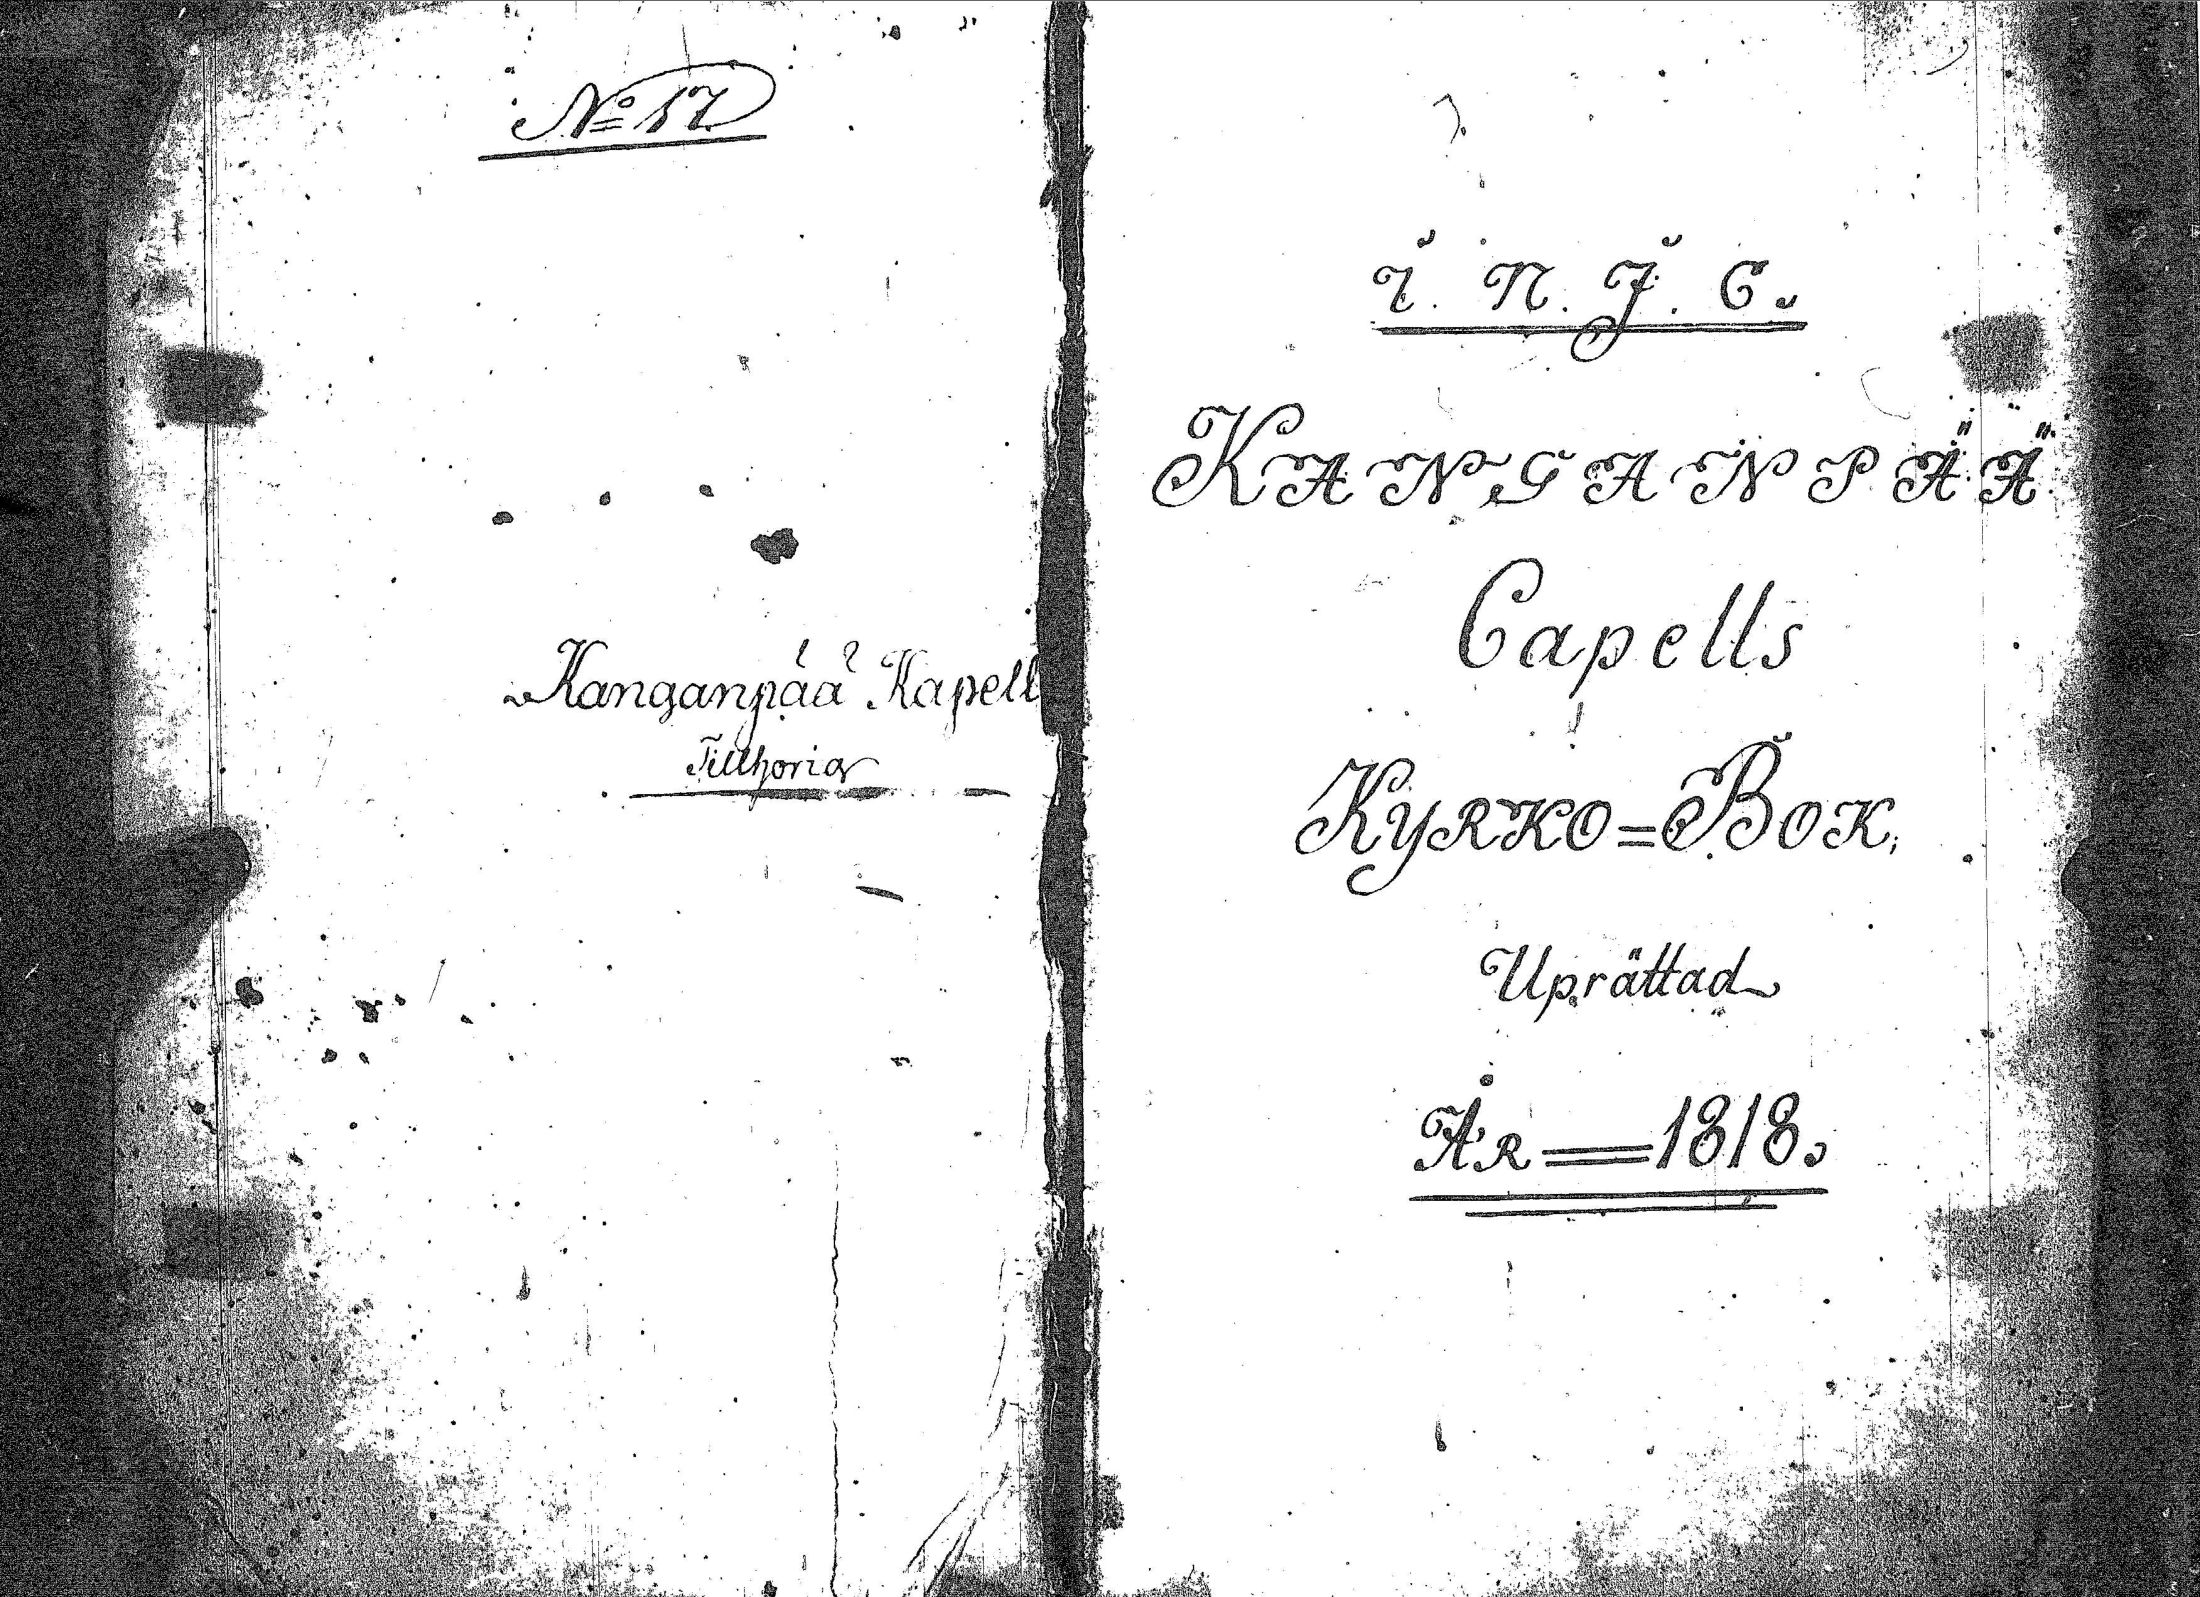 No 17
Kanganpää Kapell
Tillhörig
I. N. J. C.
KANGANPÄÄ
Capells
KYRKO=BOK,
Uprättad
ÅR=1818.